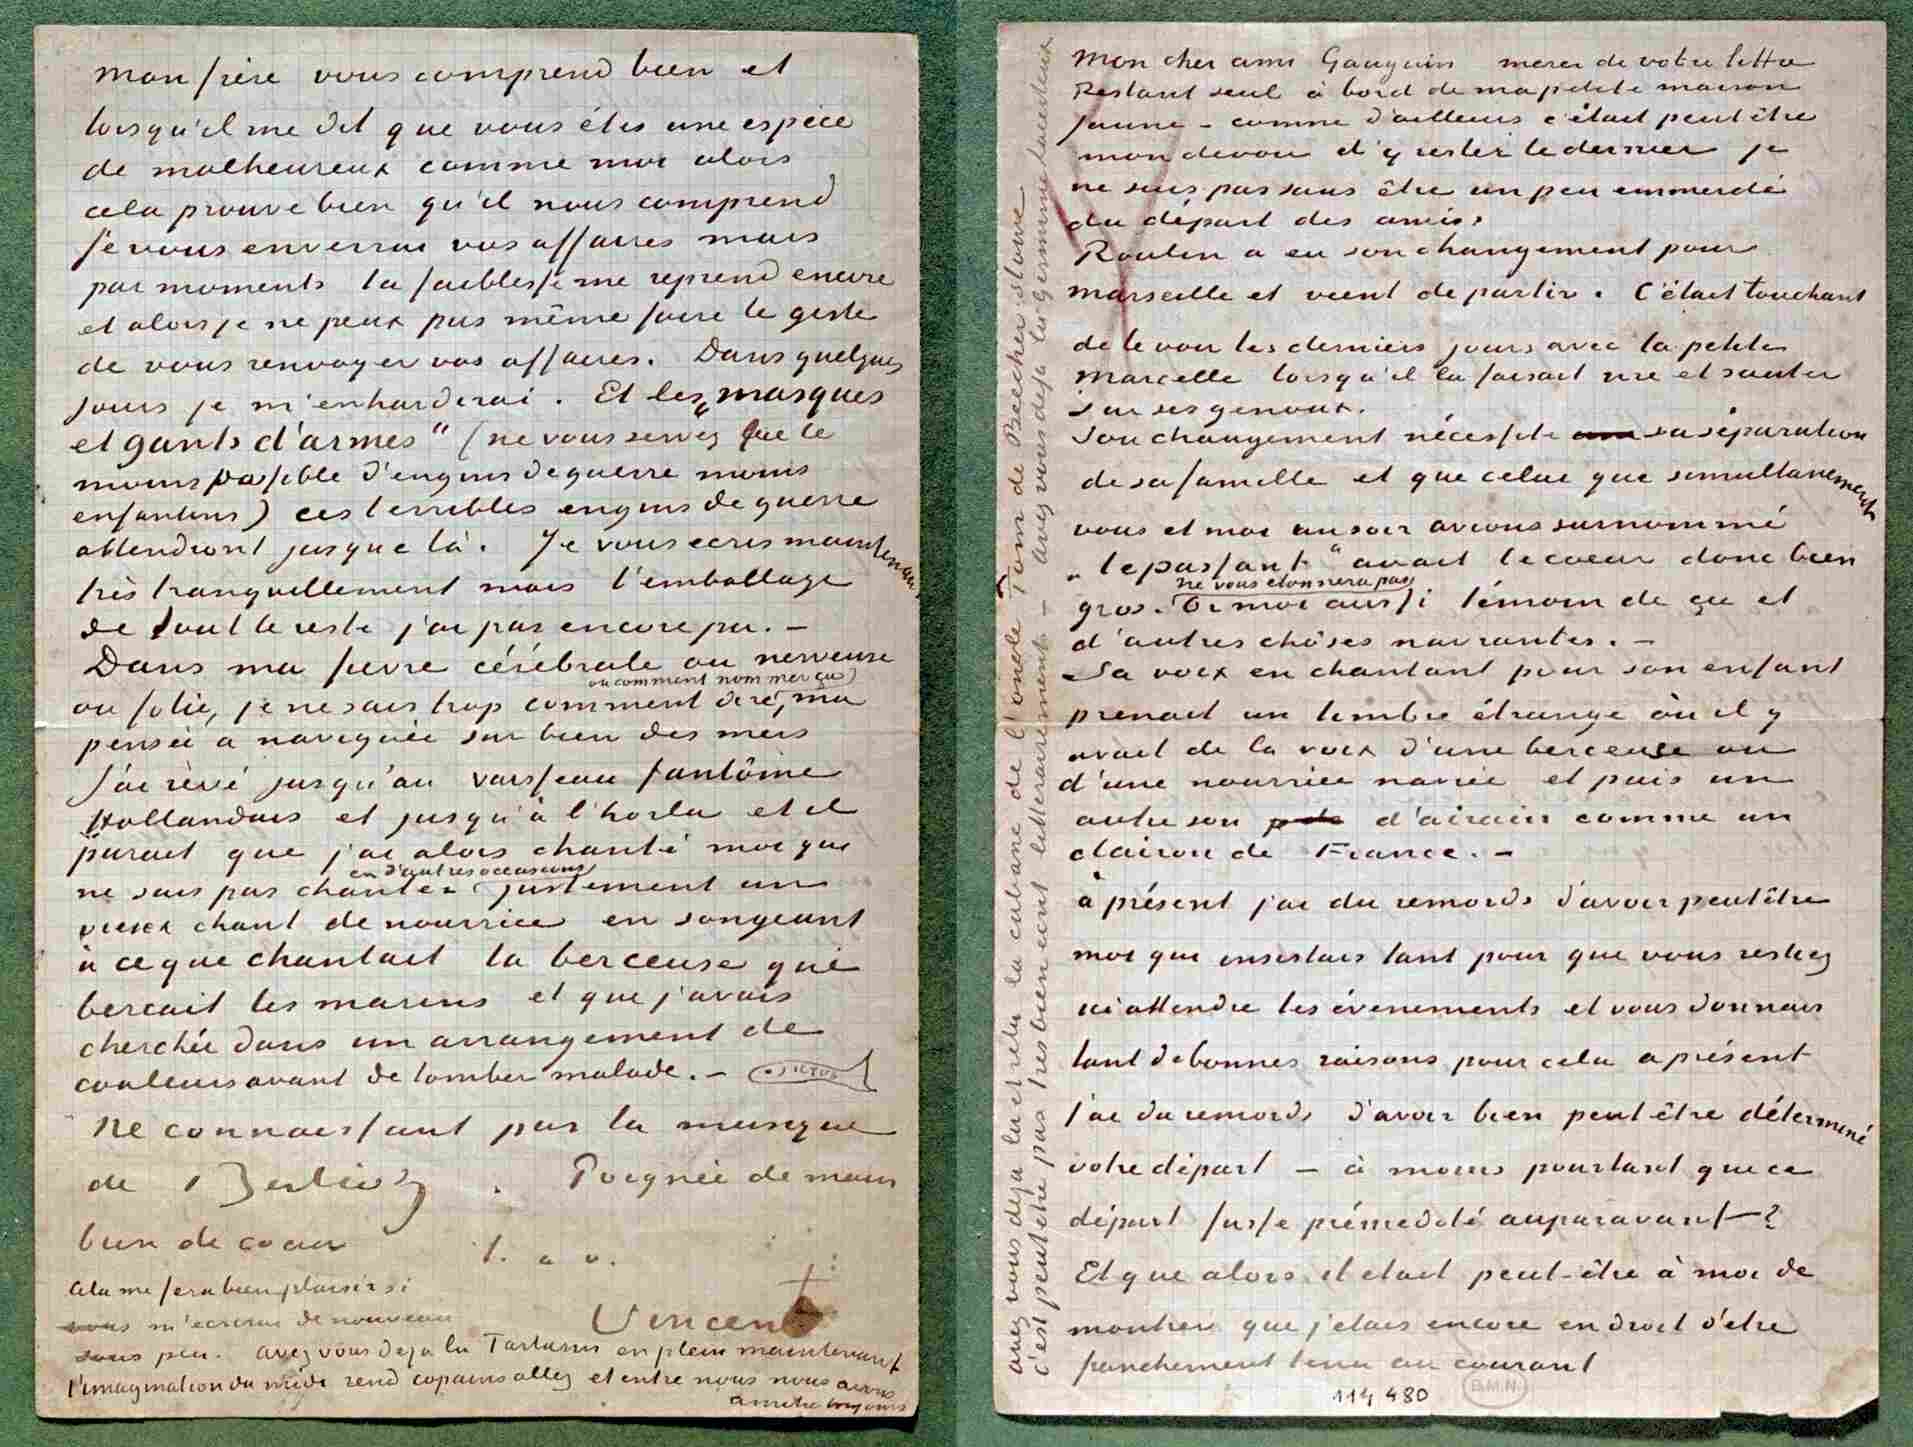 mon frère vous comprend bien et
lorsqu'il me dit que vous étes une espèce
de malheureux comme moi alors
cela prouve bien qu'il nous comprend
Je vous enverrai vos affaires mais
par moments la faiblesse me reprend encore
et alors je ne peux pas même faire le geste
de vous renvoyer vos affaires. Dans quelques
jours je m'enhardirai. Et les „masques
et gants d'armes" (ne vous servez que le
moins possible d'engins de guerre moins
enfantins) ces terribles engins de guerre
attendront jusque là. Je vous ecris maintenant
très tranquillement mais l'emballage
de tout le reste j'ai pas encore pu. —
Dans ma fievre cérébrale ou nerveuse
ou comment nommer ça)
ou folie, je ne sais trop comment dire, ma
pensée a naviguée sur bien des mers
J'ai rêvé jusqu'au vaisseau fantôme
Hollandais et jusqu'à l'horla et il
parait que j'ai alors chanté moi qui
en d'autres occasions
ne sais pas chanter justement un
vieux chant de nourrice en songeant
à ce que chantait la berceuse qui
bercait les marins et que j'avais
cherchée dans un arrangement de
couleurs avant de tomber malade. —
Ne connaissant pas la musique
de Berlioz. Poignée de main
bien de coeur t. a v.
Cela me fera bien plaisir si
Vincent
vous m'ecrivez de nouveau
sous peu. avez vous deja lu Tartarin en plein maintenant
l'imagination du midi rend copains allez et entre nous nous avons
amitié toujours
Mon cher ami Gauguin merci de votre lettre
Restant seul à bord de ma petite maison
jaune — comme d'ailleurs c'était peut être
mon devoir d'y rester le dernier je
ne suis pas sans être un peu emmerdé
du départ des amis.
Roulin a eu son changement pour
Marseille et vient de partir. C'était touchant
de le voir les derniers jours avec la petite
Marcelle lorsqu'il la faisait rire et sauter
sur ses genoux.
Son changement nécessite sa séparation
de sa famille et que celui que simultanement
vous et moi un soir avions surnommé
„le passant" avait le coeur donc bien
ne vous etonnera pas
gros. Or moi aussi témoin de ça et
d'autres chôses navrantes. —
Sa voix en chantant pour son enfant
prenait un timbre étrange où il y
avait de la voix d'une berceuse ou
d'une nourrice navrée et puis un
autre son d'airain comme un
clairon de France. —
à présent j'ai du remords d'avoir peut être
moi qui insistais tant pour que vous restiez
ici attendre les évenements et vous donnais
tant de bonnes raisons pour cela a présent
J'ai du remords d'avoir bien peut être déterminé
votre départ — à moins pourtant que ce
départ fusse prémedité auparavant — ?
Et que alors il etait peut-être à moi de
montrer que j'étais encore en droit d'etre
franchement tenu au courant
avez vous deja lu et relu la cabane de l'oncle Tom de Beecher Stowe
c'est peut être pas très bien ecrit litterairement — avez vous deja lu Germinie Lacerteux
114 480
B.M.N.